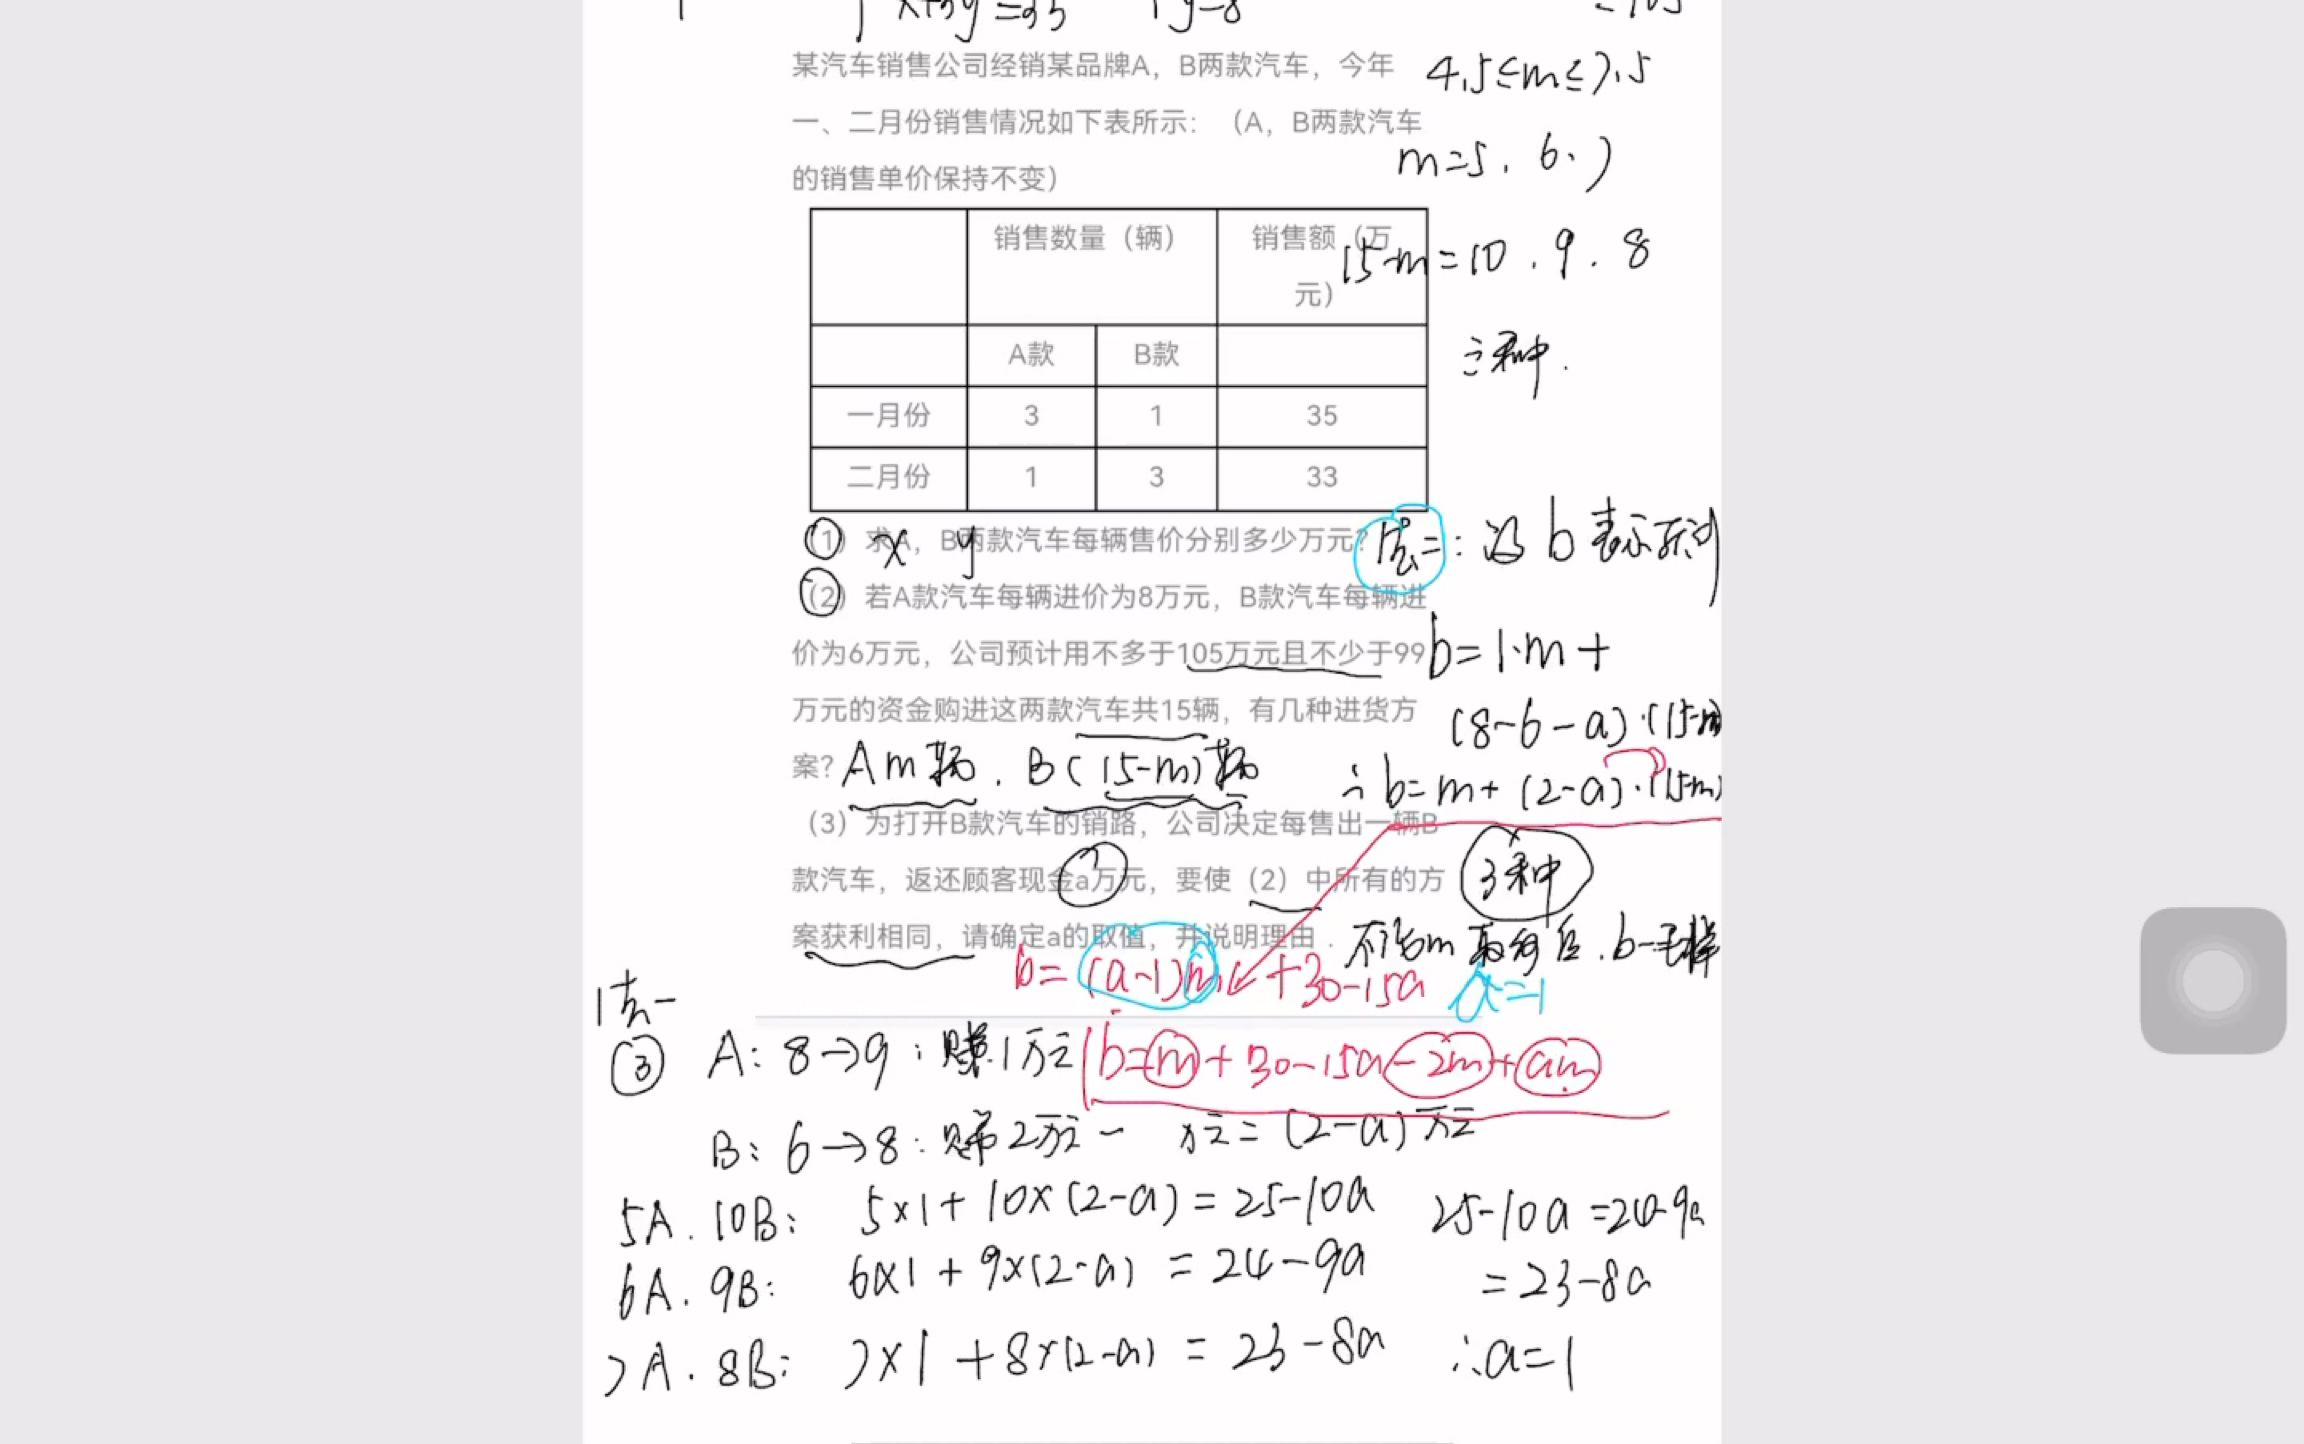 某汽车销售公司经销某品牌A，B两款汽车，今年
4.5≤m≤7.5
一、二月份销售情况如下表所示：（A，B两款汽车
m=5．6．7
的销售单价保持不变）
销售数量（辆） 销售额（万元）
15-m=10．9．8
三种．
A款 B款
一月份 3 1 35
二月份 1 3 33
(1) 求A，B两款汽车每辆售价分别多少万元？
x y
法二：设b表示获利
(2) 若A款汽车每辆进价为8万元，B款汽车每辆进
价为6万元，公司预计用不多于105万元且不少于99
b=1·m+
万元的资金购进这两款汽车共15辆，有几种进货方
(8-6-a)·(15-m)
案？ A m辆．B(15-m)辆
∴b=m+(2-a)·(15-m)
（3）为打开B款汽车的销路，公司决定每售出一辆B
款汽车，返还顾客现金a万元，要使（2）中所有的方
3种
案获利相同，请确定a的取值，并说明理由．
不论m取多少．b一样
b=(a-1)m+30-15a a=1
法一
③ A：8→9：赚1万元
b=m+30-15a-2m+am
B：6→8：赚2万元- 万元=(2-a)万元
5A．10B：5×1+10×(2-a)=25-10a 25-10a=24-9a
6A．9B：6×1+9×(2-a)=24-9a =23-8a
7A．8B：7×1+8×(2-a)=23-8a ∴a=1